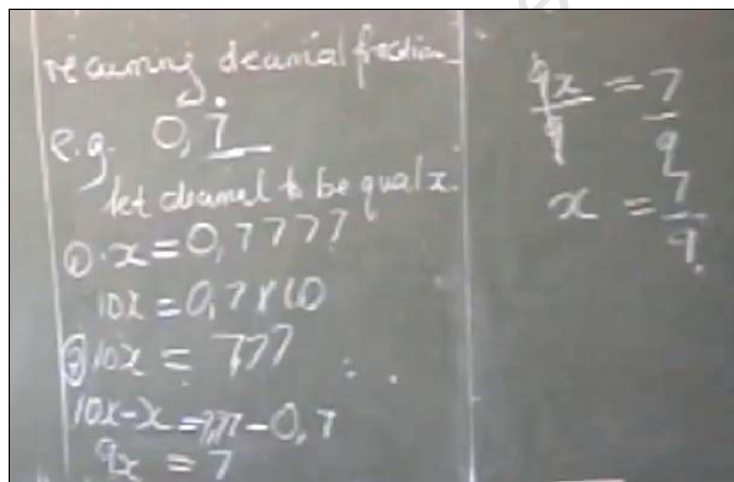 recurring decimal fraction
e.g. 0,7̇
let decimal to be qual x.
① x = 0,7777
10x = 0,7 x 10
② 10x = 7,77
10x - x = 7,77 - 0,7
9x = 7
9x/9 = 7/9
x = 7/9.